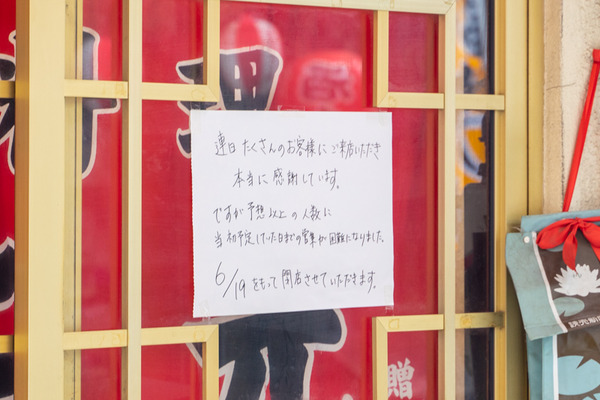 連日たくさんのお客様にご来店いただき
本当に感謝しています。
ですが予想以上の人数に
当初予定していた日までの営業が困難になりました。
6/19をもって閉店させていただきます。
贈
読売新聞